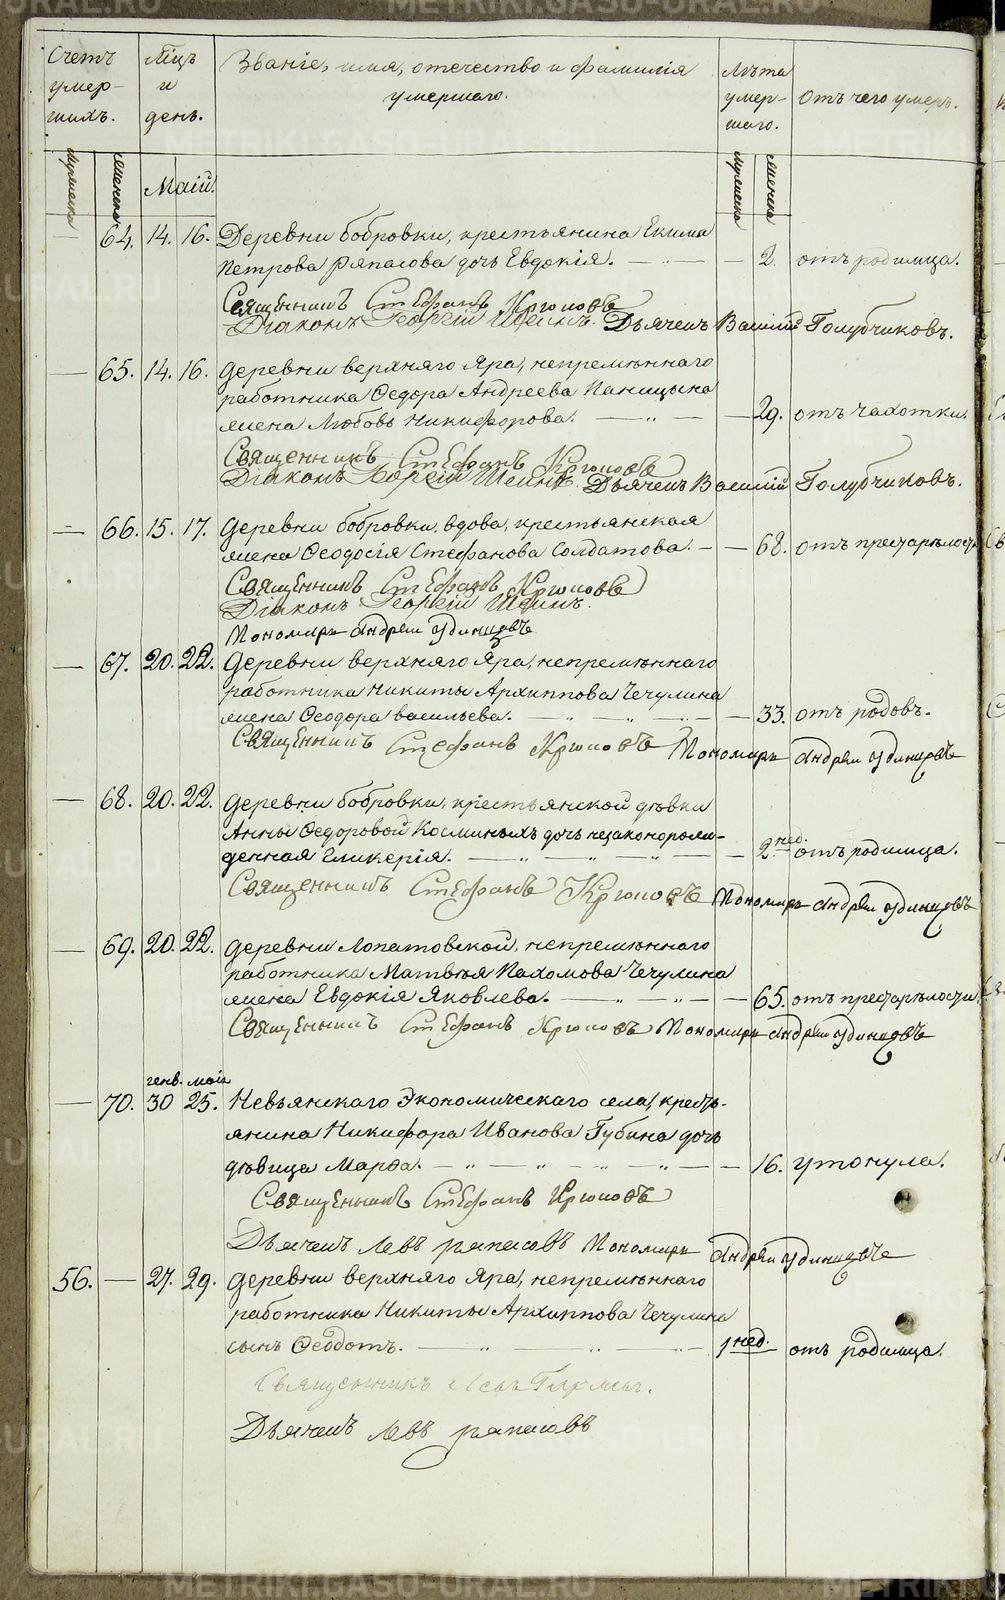 METRIKI.GASO-URAL.RU
Счетъ умер- шихъ.
Мцъ и день.
Званіе, имя, отечество и фамилія умершаго.
Лѣта умер- шаго.
Отъ чего умеръ.
мужеска женска
Маій.
мужеска женска
— 64. 14. 16. Деревни бобровки, крестьянина Екима
Петрова Ряпасова дочь Евдокія. — „ — — 2 отъ родимца.
Священникъ Стефанъ Крюковъ
Діаконъ Георгій Шеинъ. Дьячекъ Василій Голубчиковъ.
— 65. 14. 16. деревни верхняго Яра, непремѣннаго
работника Ѳедора Андреева Паницына
жена Любовь Никифорова. — „ — — 29. отъ чахотки.
Священникъ Стефанъ Крюковъ
Діаконъ Георгій Шеинъ. Дьячекъ Василій Голубчиковъ.
— 66. 15. 17. деревни бобровки, вдова, крестьянская
жена Ѳеодосія Стефанова Солдатова. — — 68. отъ престарѣлости
Священникъ Стефанъ Крюковъ
Діаконъ Георгій Шеинъ.
Пономарь Андрей Удинцовъ
— 67. 20. 22. деревни верхняго Яра, непремѣннаго
работника Никиты Архиппова Чечулина
жена Ѳеодора васильева. — „ — „ — — 33. отъ родовъ.
Священникъ Стефанъ Крюковъ Пономарь Андрей Удинцовъ
— 68. 20. 22. деревни бобровки, крестьянской дѣвки
Анны Ѳедоровой Косминыхъ дочь незаконорож-
денная Гликерія. — „ — „ — „ — — 2 нед. отъ родимца.
Священникъ Стефанъ Крюковъ Пономарь Андрей Удинцовъ
— 69. 20. 22. деревни Лопатовской, непремѣннаго
работника Матвѣя Пахомова Чечулина
жена Евдокія Яковлева. — „ — „ — — 65. отъ престарѣлости.
Священникъ Стефанъ Крюковъ Пономарь Андрей Удинцовъ
генв. маія
— 70. 30 25. Невьянскаго Экономическаго села, кресть-
янина Никифора Иванова Губина дочь
дѣвица Марѳа. — „ — „ — „ — — 16. утонула.
Священникъ Стефанъ Крюковъ
Дьячекъ Левъ Ряпасовъ Пономарь Андрей Удинцовъ
56. — 27. 29. деревни верхняго Яра, непремѣннаго
работника Никиты Архиппова Чечулина
сынъ Ѳеодотъ. — „ — „ — 1 нед. отъ родимца.
Священникъ
Дьячекъ Левъ Ряпасовъ